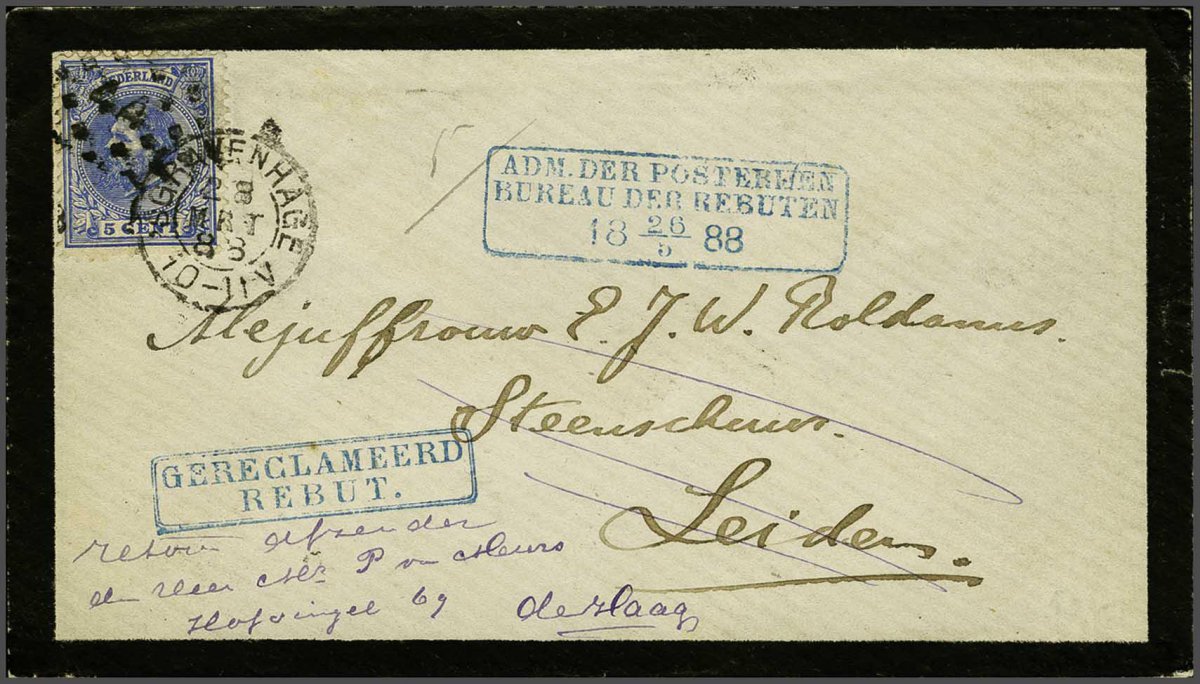 NEDERLAND
5 CENT
'S GRAVENHAGE
28
MRT
88
10-11V
5
ADM. DER POSTERIJEN
BUREAU DER REBUTEN
18 26/5 88
Mejuffrouw E. J. W. Roldanus.
Steenschuur.
Leiden.
GERECLAMEERD
REBUT.
retour afzender
den Heer Mr P van Meurs
Hofsingel 69 den Haag